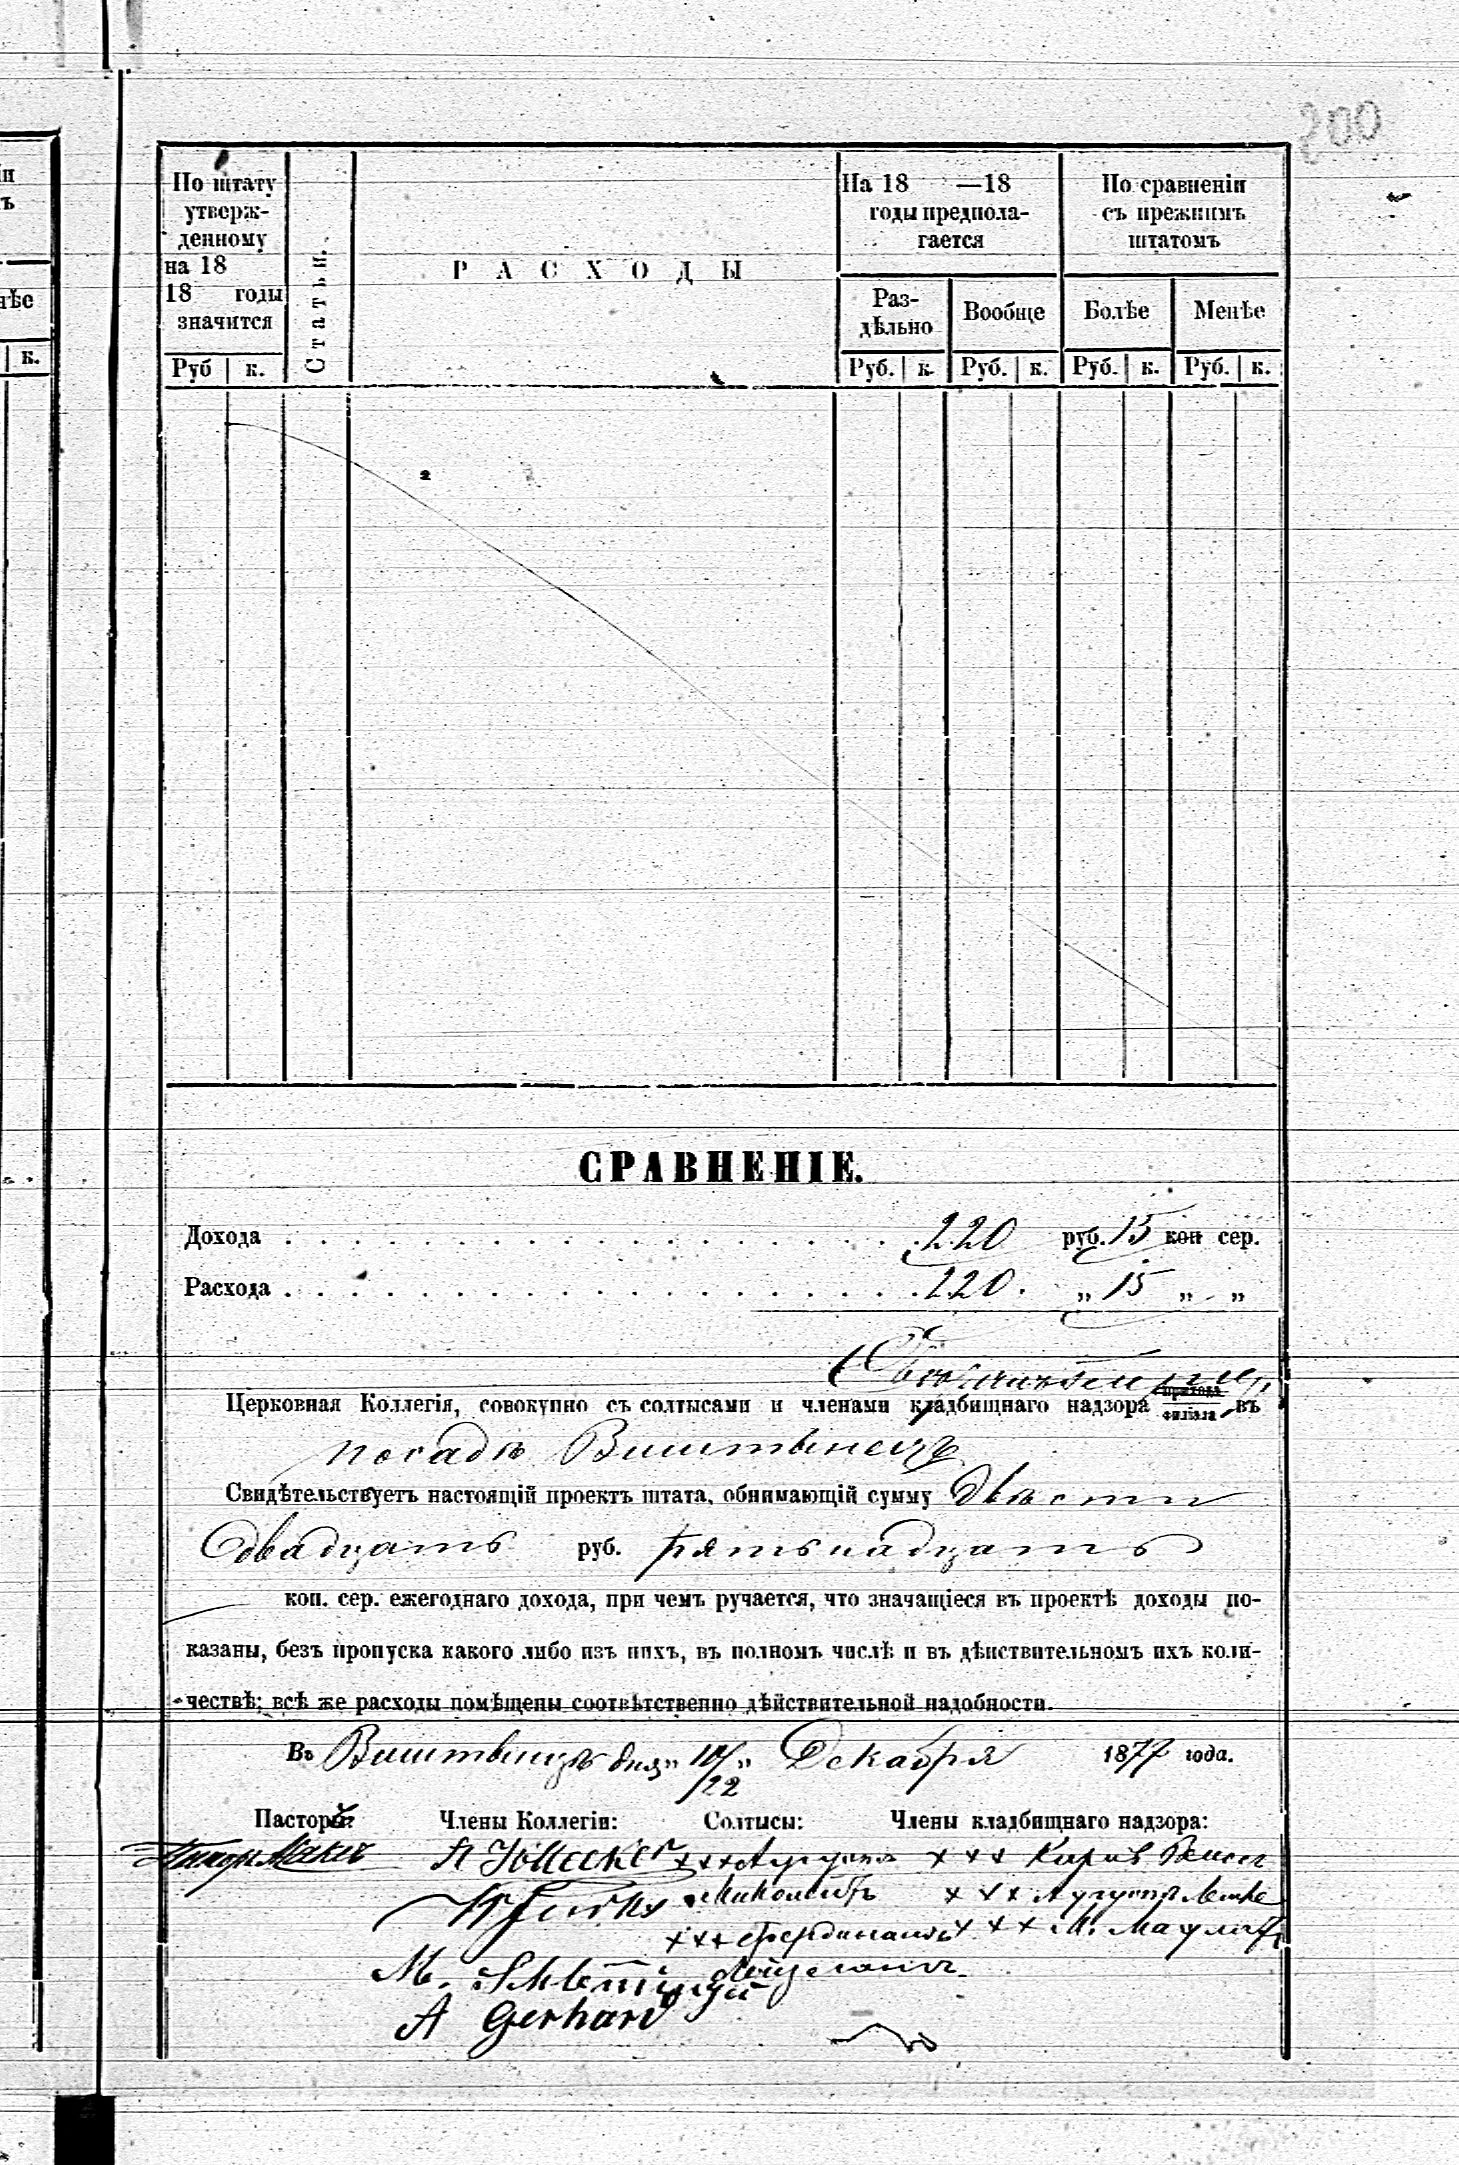 200
По штату
утверж-
денному
на 18
18 годы
значится
Руб к.
Статьи.
РАСХОДЫ
На 18 —18
годы предпола-
гается
Раз-
дѣльно
Вообще
Руб. к. Руб. к.
По сравненіи
съ прежнимъ
штатомъ
Болѣе Менѣе
Руб. к. Руб. к.
СРАВНЕНІЕ.
Дохода 220 руб. 15 коп сер.
Расхода 220 „ 15 „ „
Церковная Коллегія, совокупно съ солтысами и членами кладбищнаго надзора прихода филіала въ
посадѣ Виштынецъ
Свидѣтельствуетъ настоящій проектъ штата, обнимающій сумму Двѣсти
двадцать руб. пятьнадцать
коп. сер. ежегоднаго дохода, при чемъ ручается, что значащіеся въ проектѣ доходы по-
казаны, безъ пропуска какого либо изъ нихъ, въ полномъ числѣ и въ дѣйствительномъ ихъ коли-
чествѣ; всѣ же расходы помѣщены соотвѣтственно дѣйствительной надобности.
Въ Виштынцѣ дня „10/22„ Декабря 1877 года.
Пасторъ: Члены Коллегіи: Солтысы: Члены кладбищнаго надзора:
+++ Августъ +++ Карлъ
+++ Августъ
+++ Фердинандъ +++ М.
M.
A Gerhard